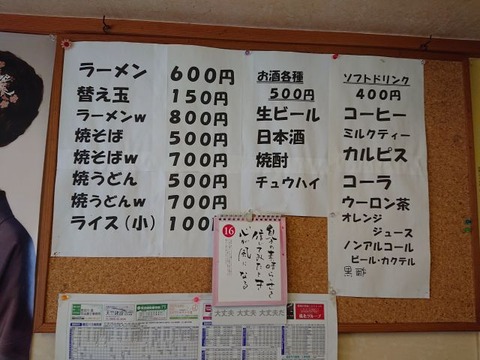 ラーメン 600円
替え玉 150円
ラーメンw 800円
焼そば 500円
焼そばw 700円
焼うどん 500円
焼うどんw 700円
ライス(小) 100
お酒各種
500円
生ビール
日本酒
焼酎
チュウハイ
ソフトドリンク
400円
コーヒー
ミルクティー
カルピス
コーラ
ウーロン茶
オレンジ
ジュース
ノンアルコール
ビール・カクテル
16
大丈夫 大丈夫 大丈夫だ